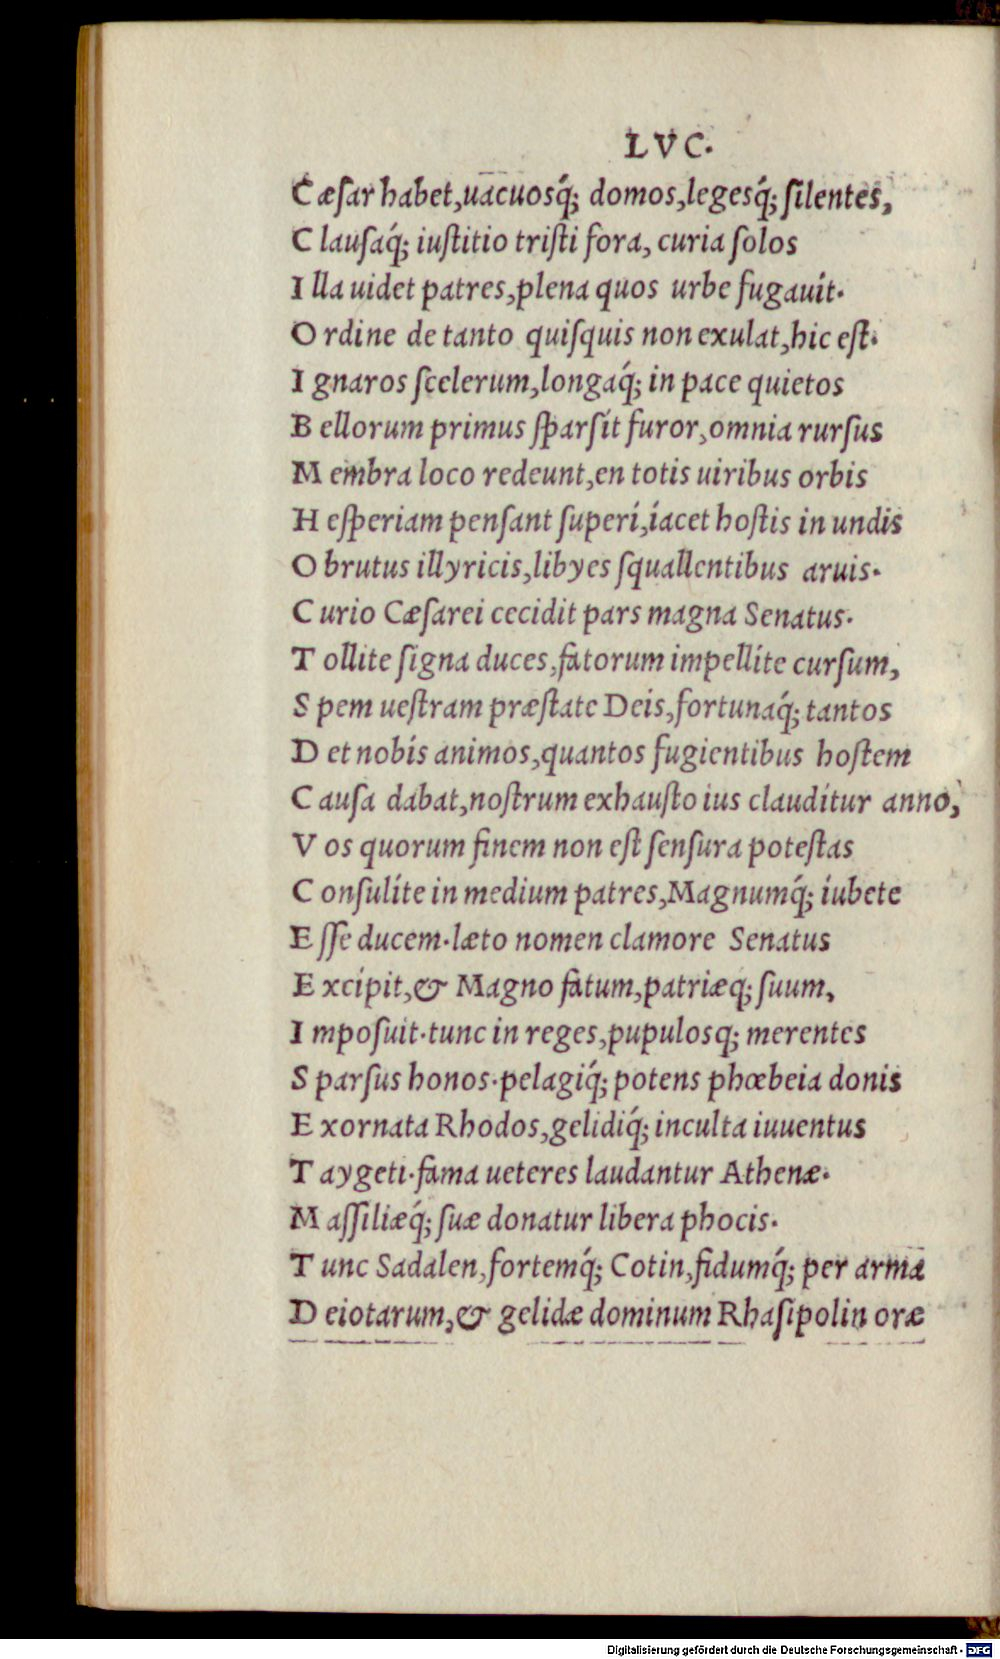 LVC.
Cæſar habet,uacuosq́; domos,legesq́; ſilentes,
C lauſaq́; iuſtitio triſti fora, curia ſolos
I lla uidet patres,plena quos urbe fugauit.
O rdine de tanto quiſquis non exulat,hic eſt.
I gnaros ſcelerum,longaq́; in pace quietos
B ellorum primus ſparſit furor,omnia rurſus
M embra loco redeunt,en totis uiribus orbis
H eſperiam penſant ſuperi,iacet hoſtis in undis
O brutus illyricis,libyes ſquallentibus aruis.
C urio Cæſarei cecidit pars magna Senatus.
T ollite ſigna duces,fatorum impellite curſum,
S pem ueſtram præſtate Deis,fortunaq́; tantos
D et nobis animos,quantos fugientibus hoſtem
C auſa dabat,noſtrum exhauſto ius clauditur anno,
V os quorum finem non eſt ſenſura poteſtas
C onſulite in medium patres,Magnumq́; iubete
E ſſe ducem.læto nomen clamore Senatus
E xcipit,& Magno fatum,patriæq; ſuum,
I mpoſuit.tunc in reges,pupulosq; merentes
S parſus honos.pelagiq́; potens phœbeia donis
E xornata Rhodos,gelidiq́; inculta iuuentus
T aygeti.fama ueteres laudantur Athenæ.
M aſſiliæq́; ſuæ donatur libera phocis.
T unc Sadalen,fortemq́; Cotin,fidumq́; per arma
D eiotarum,& gelidæ dominum Rhaſipolin oræ
Digitalisierung gefördert durch die Deutsche Forschungsgemeinschaft - DFG